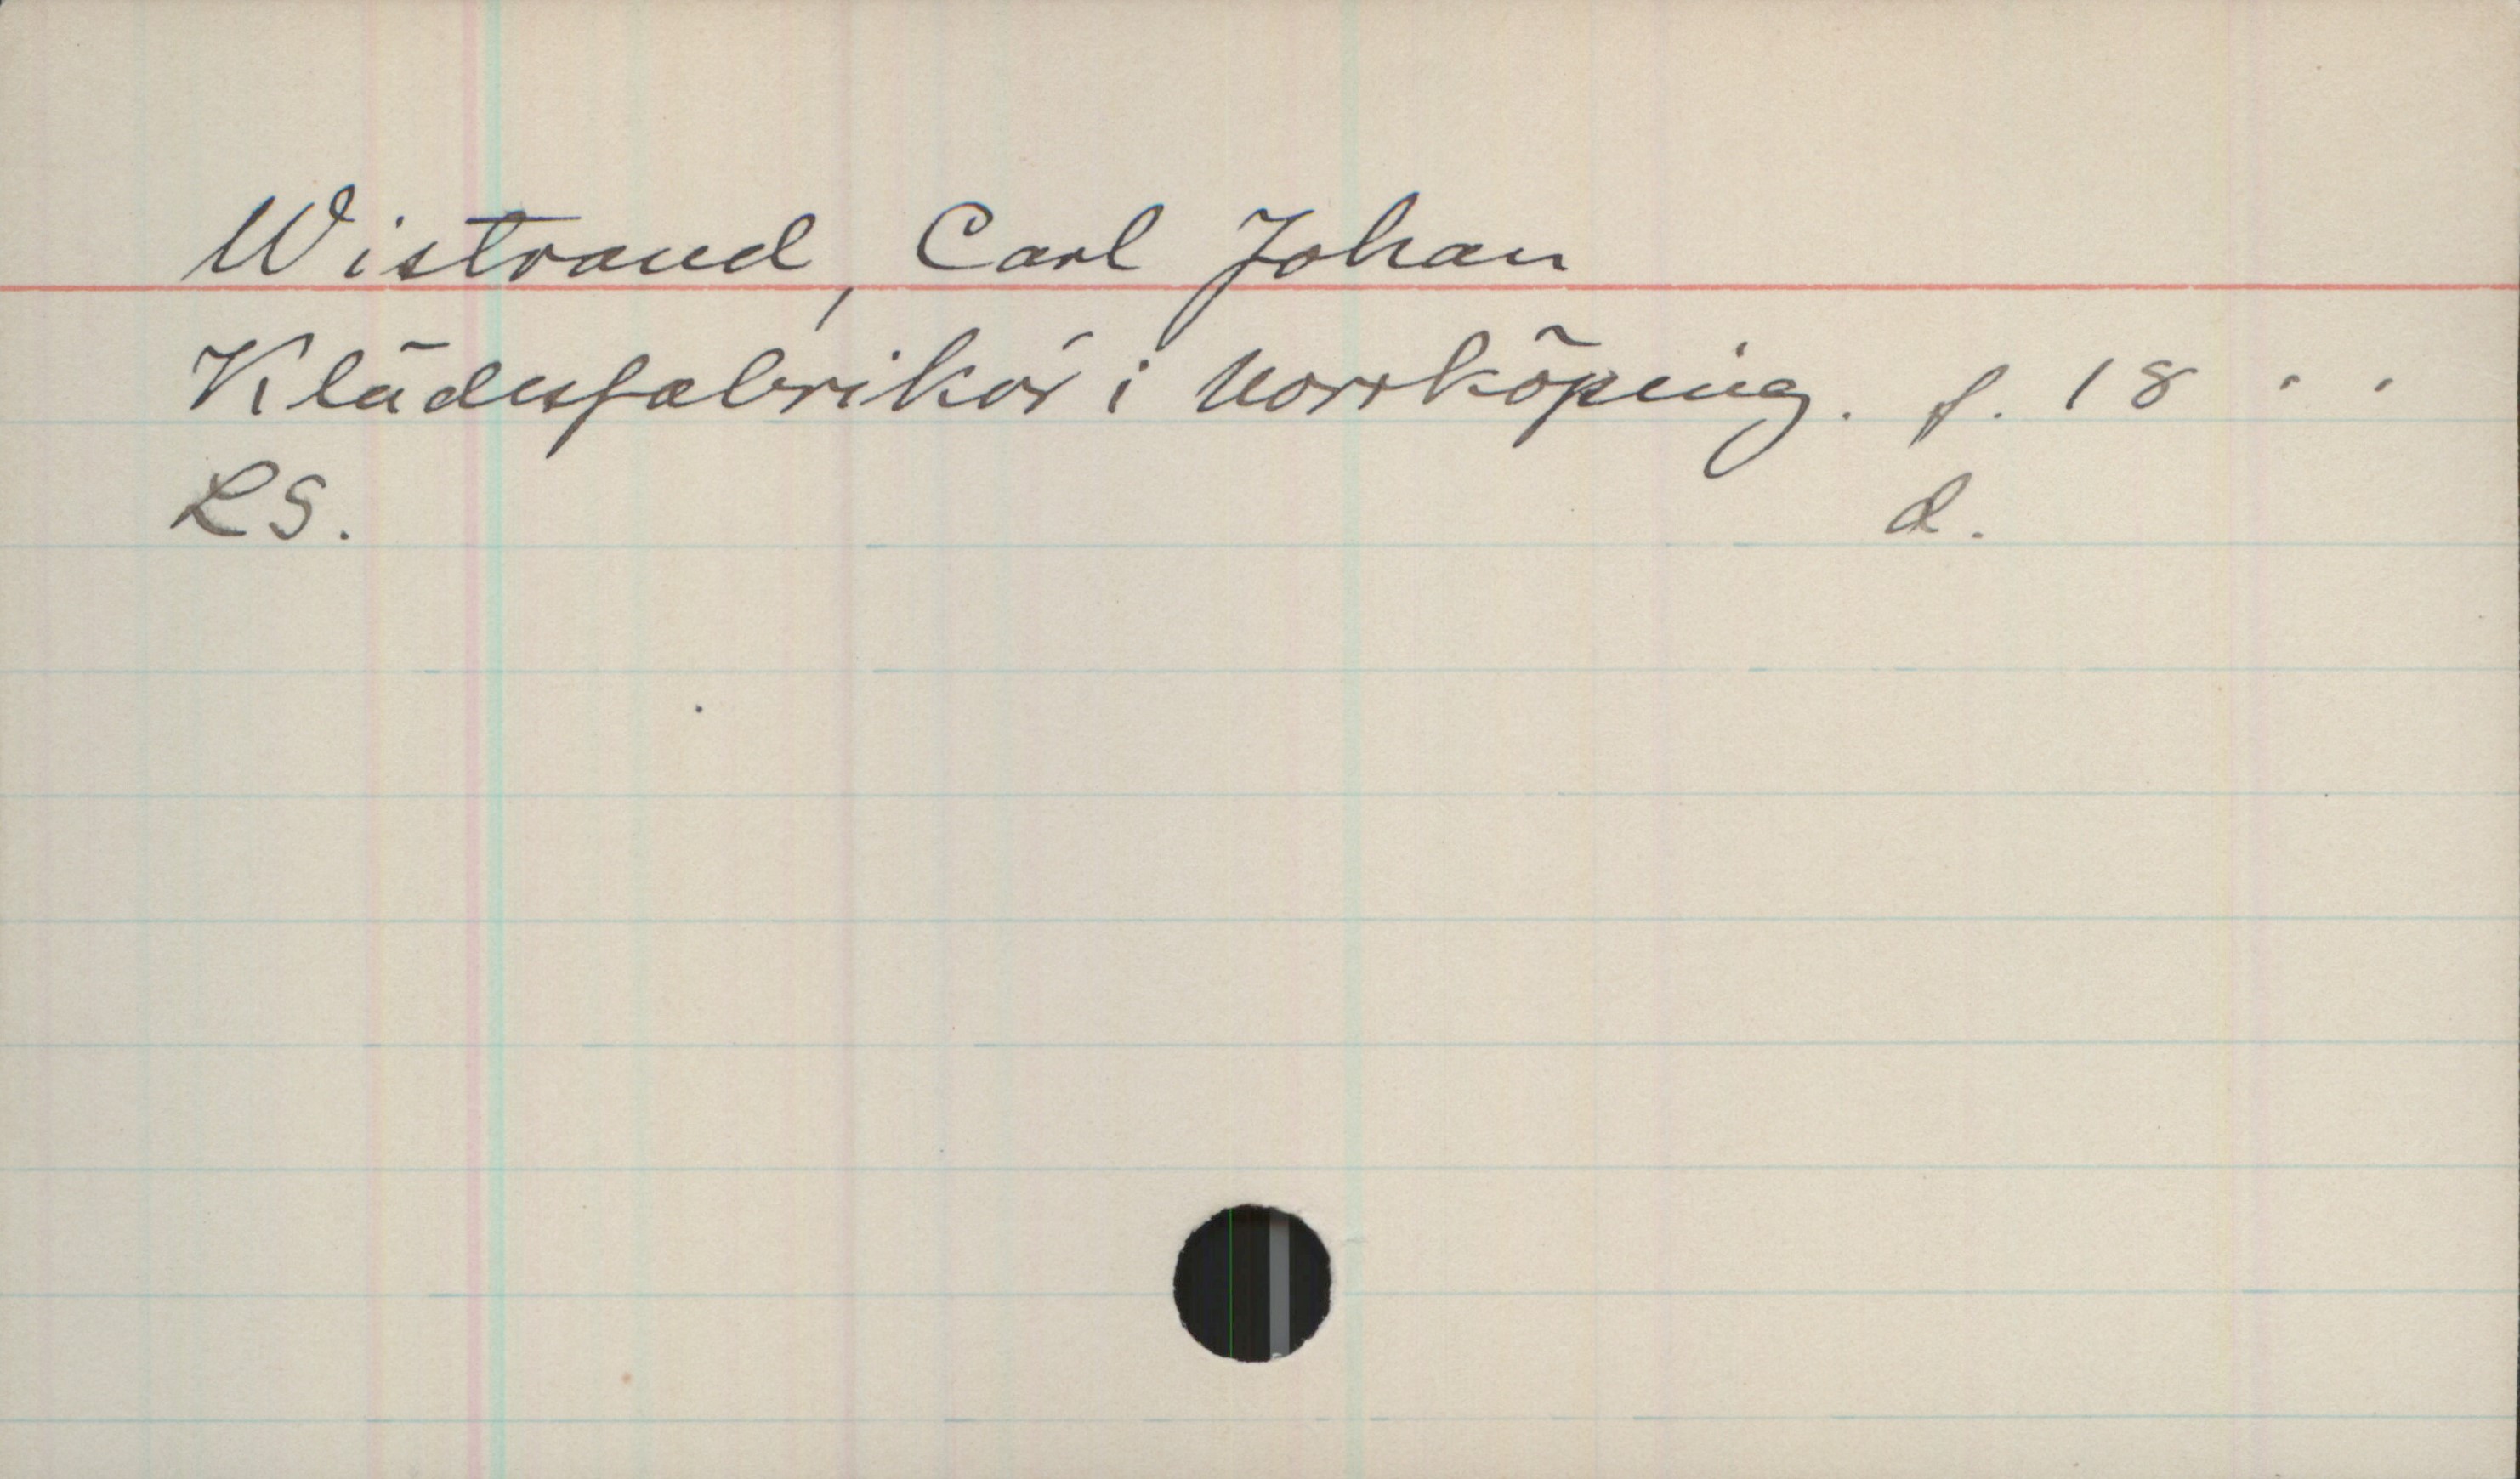 Wistrand, Carl Johan
Klädesfabrikör i Norrköping. f. 18 . .
LS. d.